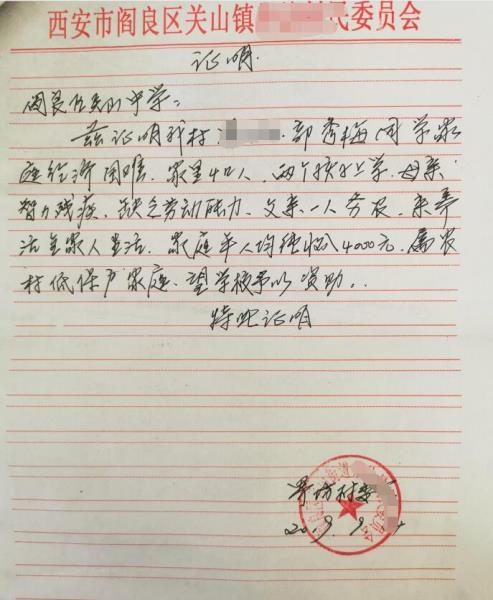 西安市阎良区关山镇 民委员会
证明
阎良区关山中学：
兹证明我村 郭秀梅同学家
庭经济困难、家里4口人、两个孩子上学、母亲
智力残疾、缺乏劳动能力、父亲一人务农、来养
活全家人生活、家庭年人均纯收入4000元、属农
村低保户家庭、望学校予以资助。
特此证明
村委